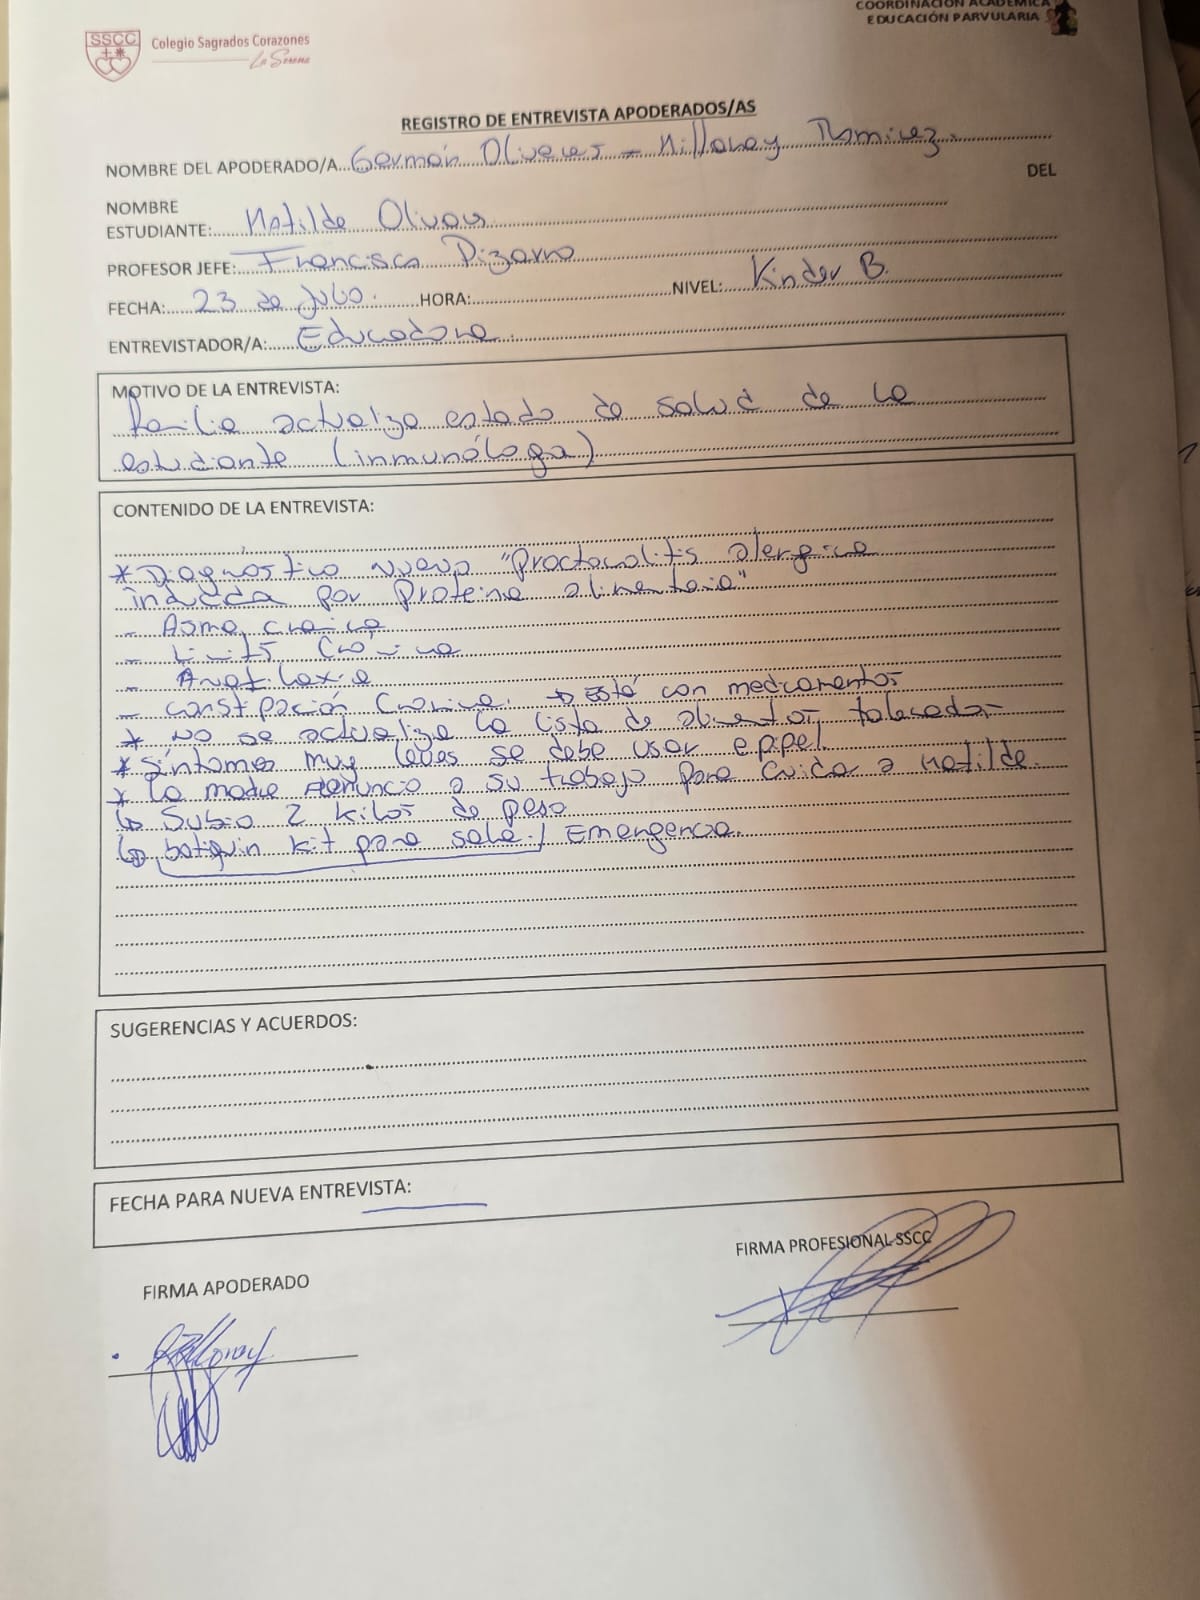 COORDINACIÓN ACADÉMICA
EDUCACIÓN PARVULARIA
SSCC
Colegio Sagrados Corazones
La Serena
REGISTRO DE ENTREVISTA APODERADOS/AS
NOMBRE DEL APODERADO/A Germán Olivares - Millaray Ramirez.
NOMBRE DEL
ESTUDIANTE: Matilde Olivares
PROFESOR JEFE: Francisca Pizarro
FECHA: 23 de Julio. HORA: NIVEL: Kinder B.
ENTREVISTADOR/A: Educadora.
MOTIVO DE LA ENTREVISTA:
Familia actualiza estado de salud de la
estudiante (inmunóloga)
CONTENIDO DE LA ENTREVISTA:
* Diagnóstico nuevo "Proctocolitis alergica
inducida por Proteina alimentaria"
- Asma cronica
- Rinitis Crónica
- Anafilaxia
- constipación Cronica. → Está con medicamentos
* No se actualiza la lista de alimentos tolerados
* Síntomas muy leves se debe usar epipel.
* La madre renuncio a su trabajo para cuidar a Matilde.
↳ Subio 2 kilos de peso
↳ botiquin kit para sala / Emergencia.
SUGERENCIAS Y ACUERDOS:
FECHA PARA NUEVA ENTREVISTA:
FIRMA PROFESIONAL SSCC
FIRMA APODERADO